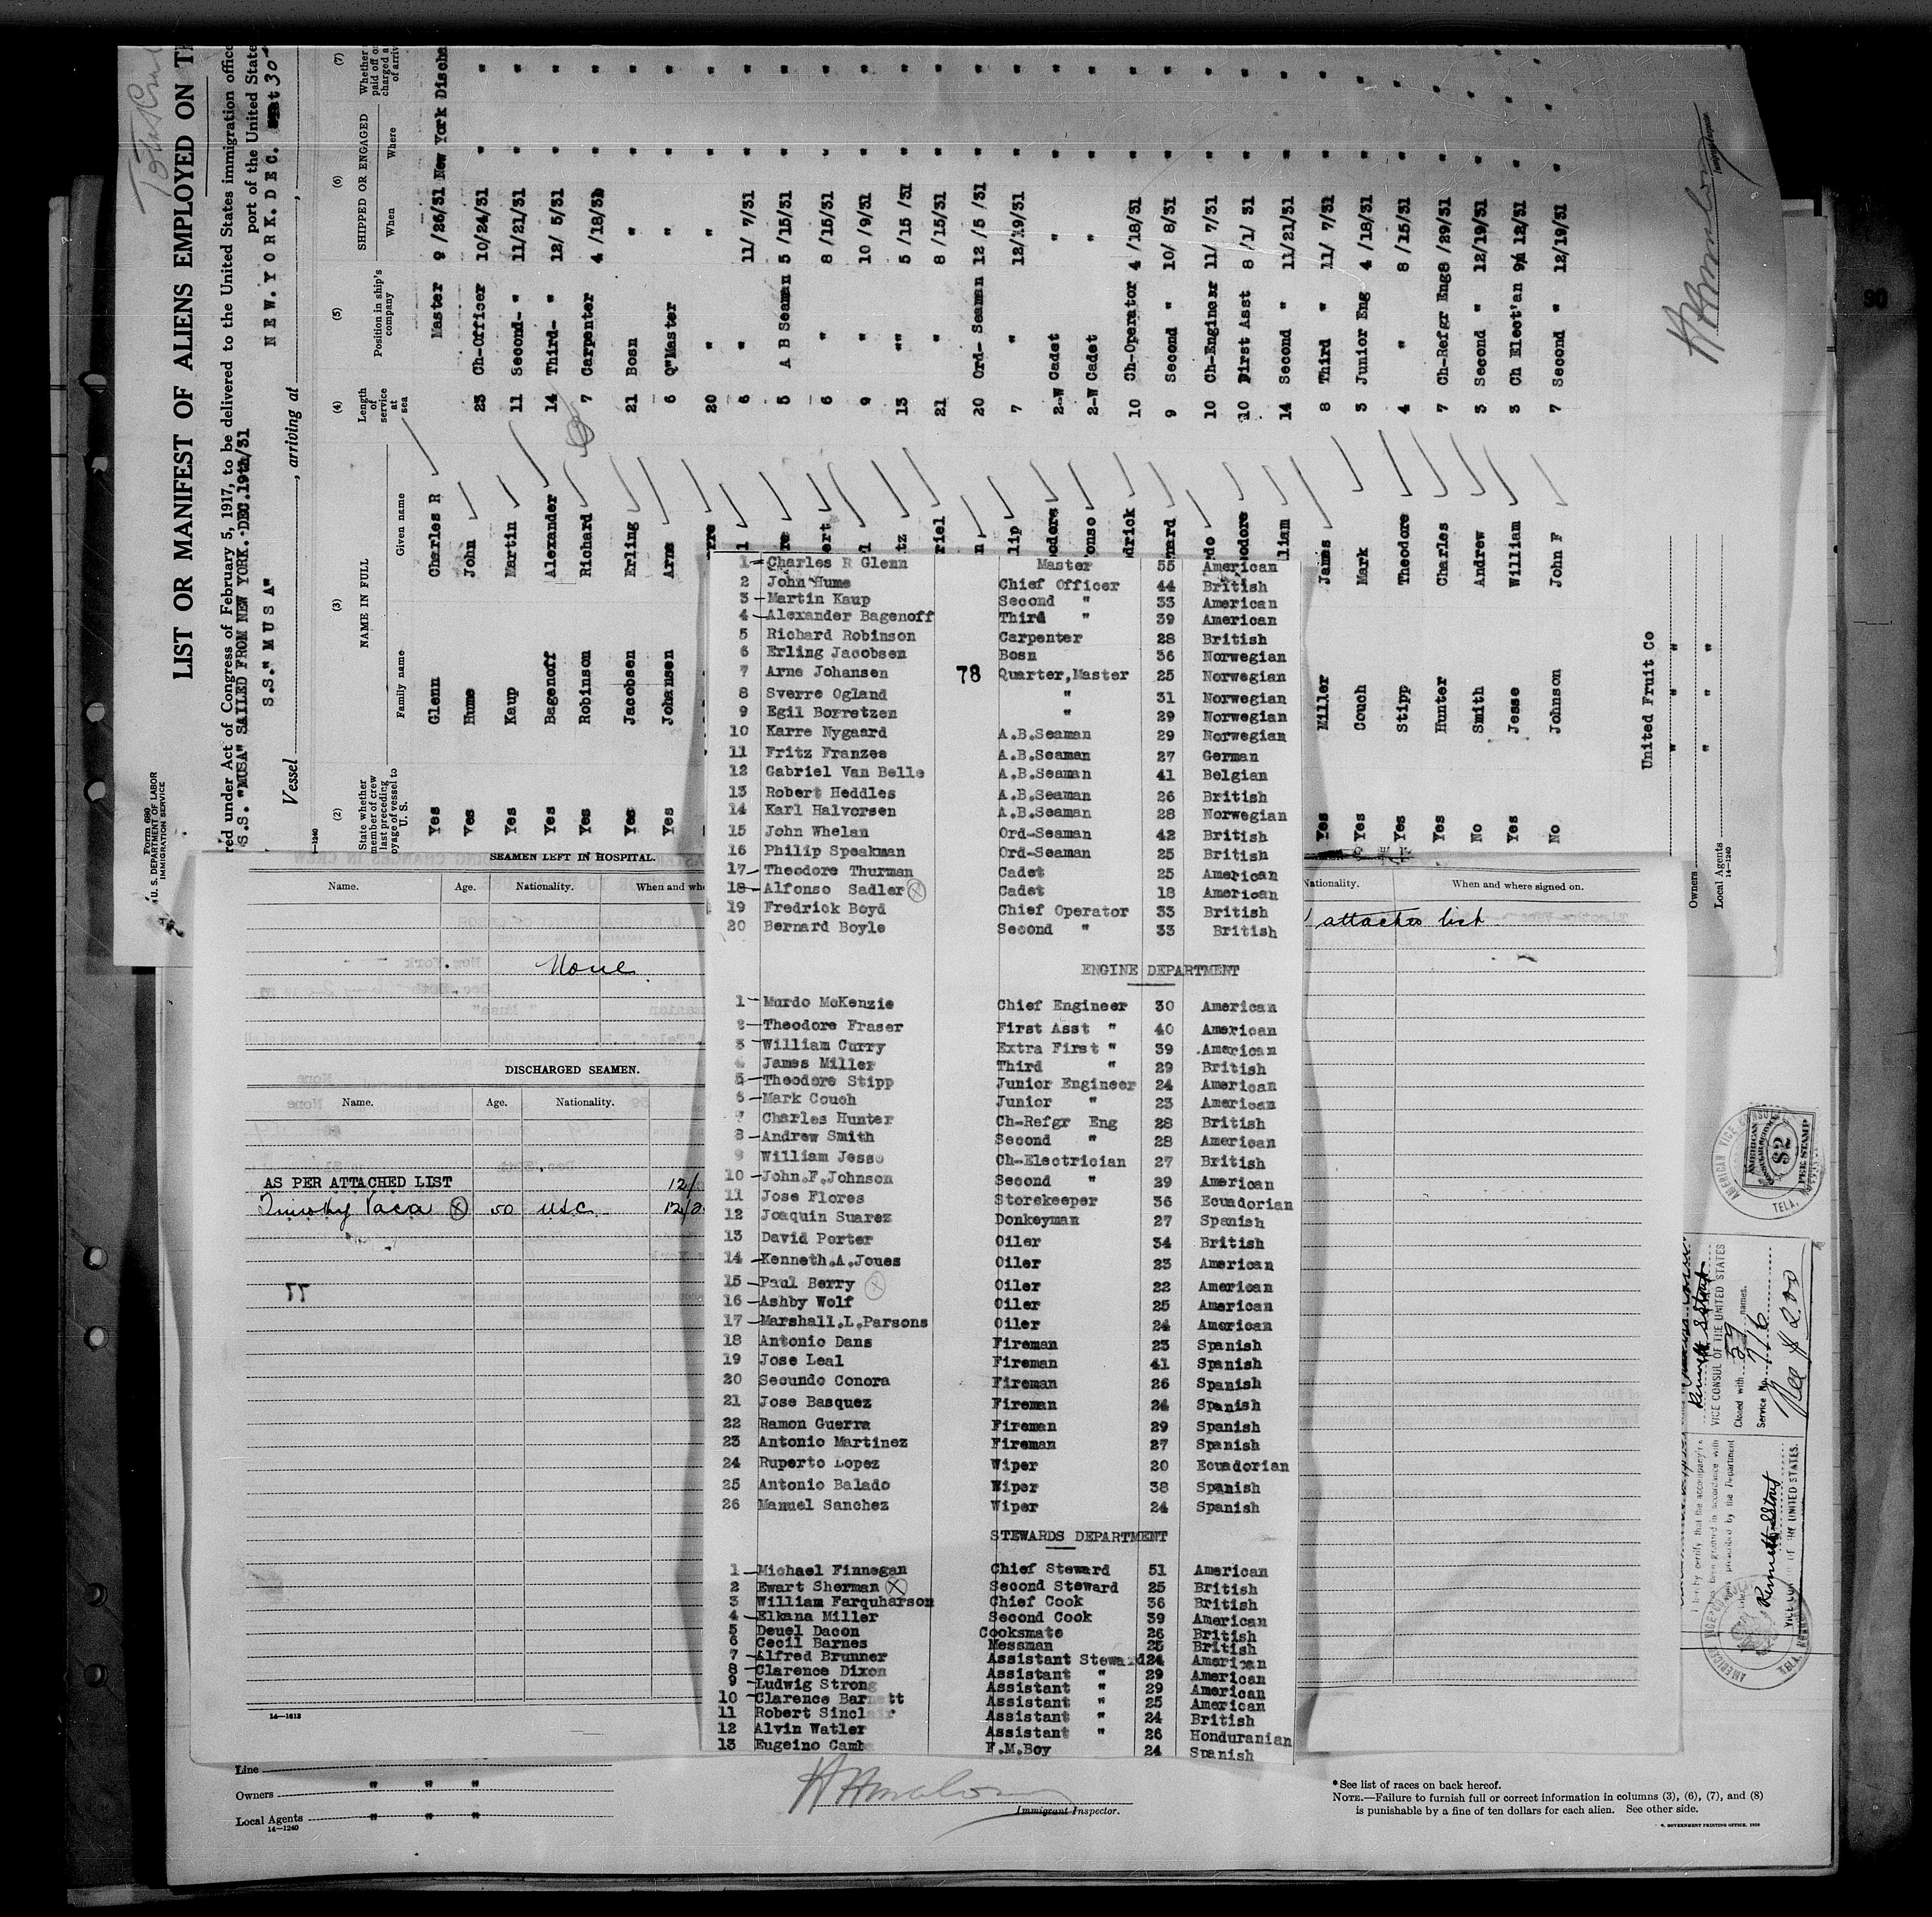 LIST OR MANIFEST OF ALIENS EMPLOYED ON
red under Act of Congress of February 5, 1917, to be delivered to the United States immigration
port of the United State
S.S. "MUSA" SAILED FROM NEW YORK. DEC. 19th/31
N E W. Y O R K. D E C. 30
S.S." M U S A"
Vessel , arriving at ,
Form 680
U. S. DEPARTMENT OF LABOR
IMMIGRATION SERVICE
14—1240
(2) (3) (4) (5) (6) (7)
State whether member of crew last preceding voyage of vessel to U. S.
NAME IN FULL
Family name Given name
Length of service at sea
Position in ship's company
SHIPPED OR ENGAGED
When Where
Yes Glenn Charles R Master 9 /26/31 New York Discha
Yes Hume John 23 Ch-Officer 10/24/31 " "
Yes Kaup Martin 11 Second- " 11/21/31 " "
Yes Bagenoff Alexander 14 Third- " 12/ 5/31 " "
Yes Robinson Richard 7 Carpenter 4 /18/31 " "
Yes Jacobsen Erling 21 Bosn " " "
Yes Johansen Arne 6 Q"Master " " "
20 " " " "
6 " 11/ 7/31 " "
5 A B Seaman 5 /15/31 " "
ert 6 " 8 /15/31 " "
9 " 10 /9/31 " "
tz 13 "" 5 /15 /31 " "
riel 21 " 8 /15/31 " "
n 20 Ord- Seaman 12 /5 /31 " "
lip 7 " 12/19/31 " "
odore 2-W Cadet " " "
onso 2-W Cadet " " "
drick 10 Ch-Operator 4 /18/31 " "
nard 9 Second " 10/ 8/31 " "
do 10 Ch-Engineer 11/ 7/31 " "
odore 10 First Asst 8 /1/ 31 " "
liam 14 Second " 11/21/31 " "
Yes Miller James 8 Third " 11/ 7/31 " "
Yes Couch Mark 3 Junior Eng 4 /18/31 " "
Yes Stipp Theodore 4 " 8 /15/31 " "
Yes Hunter Charles 7 Ch-Refgr Eng 8 /29/31 " "
No Smith Andrew 3 Second " 12/19/31 " "
Yes Jesse William 3 Ch Elect'an 12/31 " "
No Johnson John F 7 Second " 12/19/31 " "
United Fruit Co
Owners " " "
Local Agents " "
14—1240
SEAMEN LEFT IN HOSPITAL.
Name. Age. Nationality. When and whe
None
DISCHARGED SEAMEN.
Name. Age. Nationality.
AS PER ATTACHED LIST 12/
Timothy Vaca 50 USC 12/2
77
14—1613
1 Charles R Glenn Master 55 American
2 John Hume Chief Officer 44 British
3 Martin Kaup Second " 33 American
4 Alexander Bagenoff Third " 39 American
5 Richard Robinson Carpenter 28 British
6 Erling Jacobsen Bosn 36 Norwegian
7 Arne Johansen 78 Quarter,Master 25 Norwegian
8 Sverre Ogland " 31 Norwegian
9 Egil Borretzen " 29 Norwegian
10 Karre Nygaard A.B.Seaman 29 Norwegian
11 Fritz Franzes A.B.Seaman 27 German
12 Gabriel Van Belle A.B.Seaman 41 Belgian
13 Robert Heddles A.B.Seaman 26 British
14 Karl Halvorsen A.B.Seaman 28 Norwegian
15 John Whelan Ord-Seaman 42 British
16 Philip Speakman Ord-Seaman 25 British
17 Theodore Thurman Cadet 25 American
18 Alfonso Sadler Cadet 18 American
19 Fredrick Boyd Chief Operator 33 British
20 Bernard Boyle Second " 33 British
ENGINE DEPARTMENT
1 Murdo McKenzie Chief Engineer 30 American
2 Theodore Fraser First Asst " 40 American
3 William Curry Extra First " 39 American
4 James Miller Third " 29 British
5 Theodore Stipp Junior Engineer 24 American
6 Mark Couch Junior " 23 American
7 Charles Hunter Ch-Refgr Eng 28 British
8 Andrew Smith Second " 28 American
9 William Jesse Ch-Electrician 27 British
10 John.F.Johnson Second " 29 American
11 Jose Flores Storekeeper 36 Ecuadorian
12 Joaquin Suarez Donkeyman 27 Spanish
13 David Porter Oiler 34 British
14 Kenneth.A.Joues Oiler 23 American
15 Paul Berry Oiler 22 American
16 Ashby Wolf Oiler 25 American
17 Marshall.L.Parsons Oiler 24 American
18 Antonio Dans Fireman 23 Spanish
19 Jose Leal Fireman 41 Spanish
20 Secundo Conora Fireman 26 Spanish
21 Jose Basquez Fireman 24 Spanish
22 Ramon Guerra Fireman 29 Spanish
23 Antonio Martinez Fireman 27 Spanish
24 Ruperto Lopez Wiper 20 Ecuadorian
25 Antonio Balado Wiper 38 Spanish
26 Manuel Sanchez Wiper 24 Spanish
STEWARDS DEPARTMENT
1 Michael Finnegan Chief Steward 51 American
2 Ewart Sherman Second Steward 25 British
3 William Farquharson Chief Cook 36 British
4 Elkana Miller Second Cook 39 American
5 Deuel Dacon Cooksmate 26 British
6 Cecil Barnes Messman 25 British
7 Alfred Brunner Assistant Steward 24 American
8 Clarence Dixon Assistant " 29 American
9 Ludwig Strong Assistant " 29 American
10 Clarence Barnett Assistant " 25 American
11 Robert Sinclair Assistant " 24 British
12 Alvin Watler Assistant " 26 Honduranian
13 Eugeino Camb F.M.Boy 24 Spanish
Nationality. When and where signed on.
attached list
Line
Owners " " "
Local Agents " " "
14—1240
Immigrant Inspector.
*See list of races on back hereof.
NOTE.—Failure to furnish full or correct information in columns (3), (6), (7), and (8)
is punishable by a fine of ten dollars for each alien. See other side.
AMERICAN VICE CONSUL
$2
FEE STAMP
TELA,
VICE CONSUL OF THE UNITED STATES
Closed with 59 names.
Service No. 716
Fee $2.00
OF THE UNITED STATES.
90